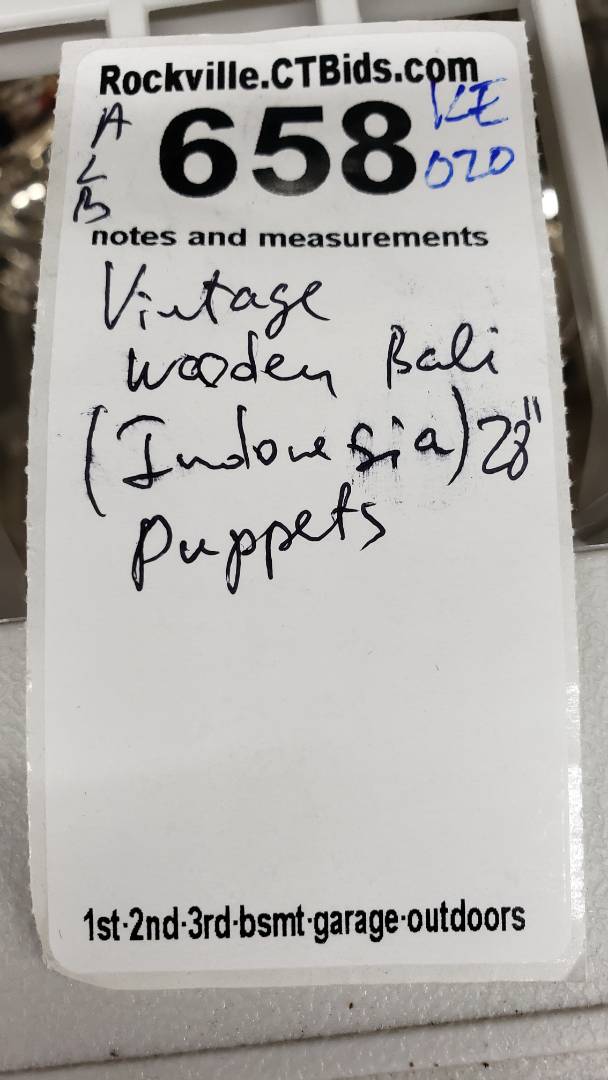 Rockville.CTBids.com
A
L
B
658
KE
020
notes and measurements
Vintage
wooden Bali
(Indonesia) 28"
puppets
1st·2nd·3rd·bsmt·garage·outdoors